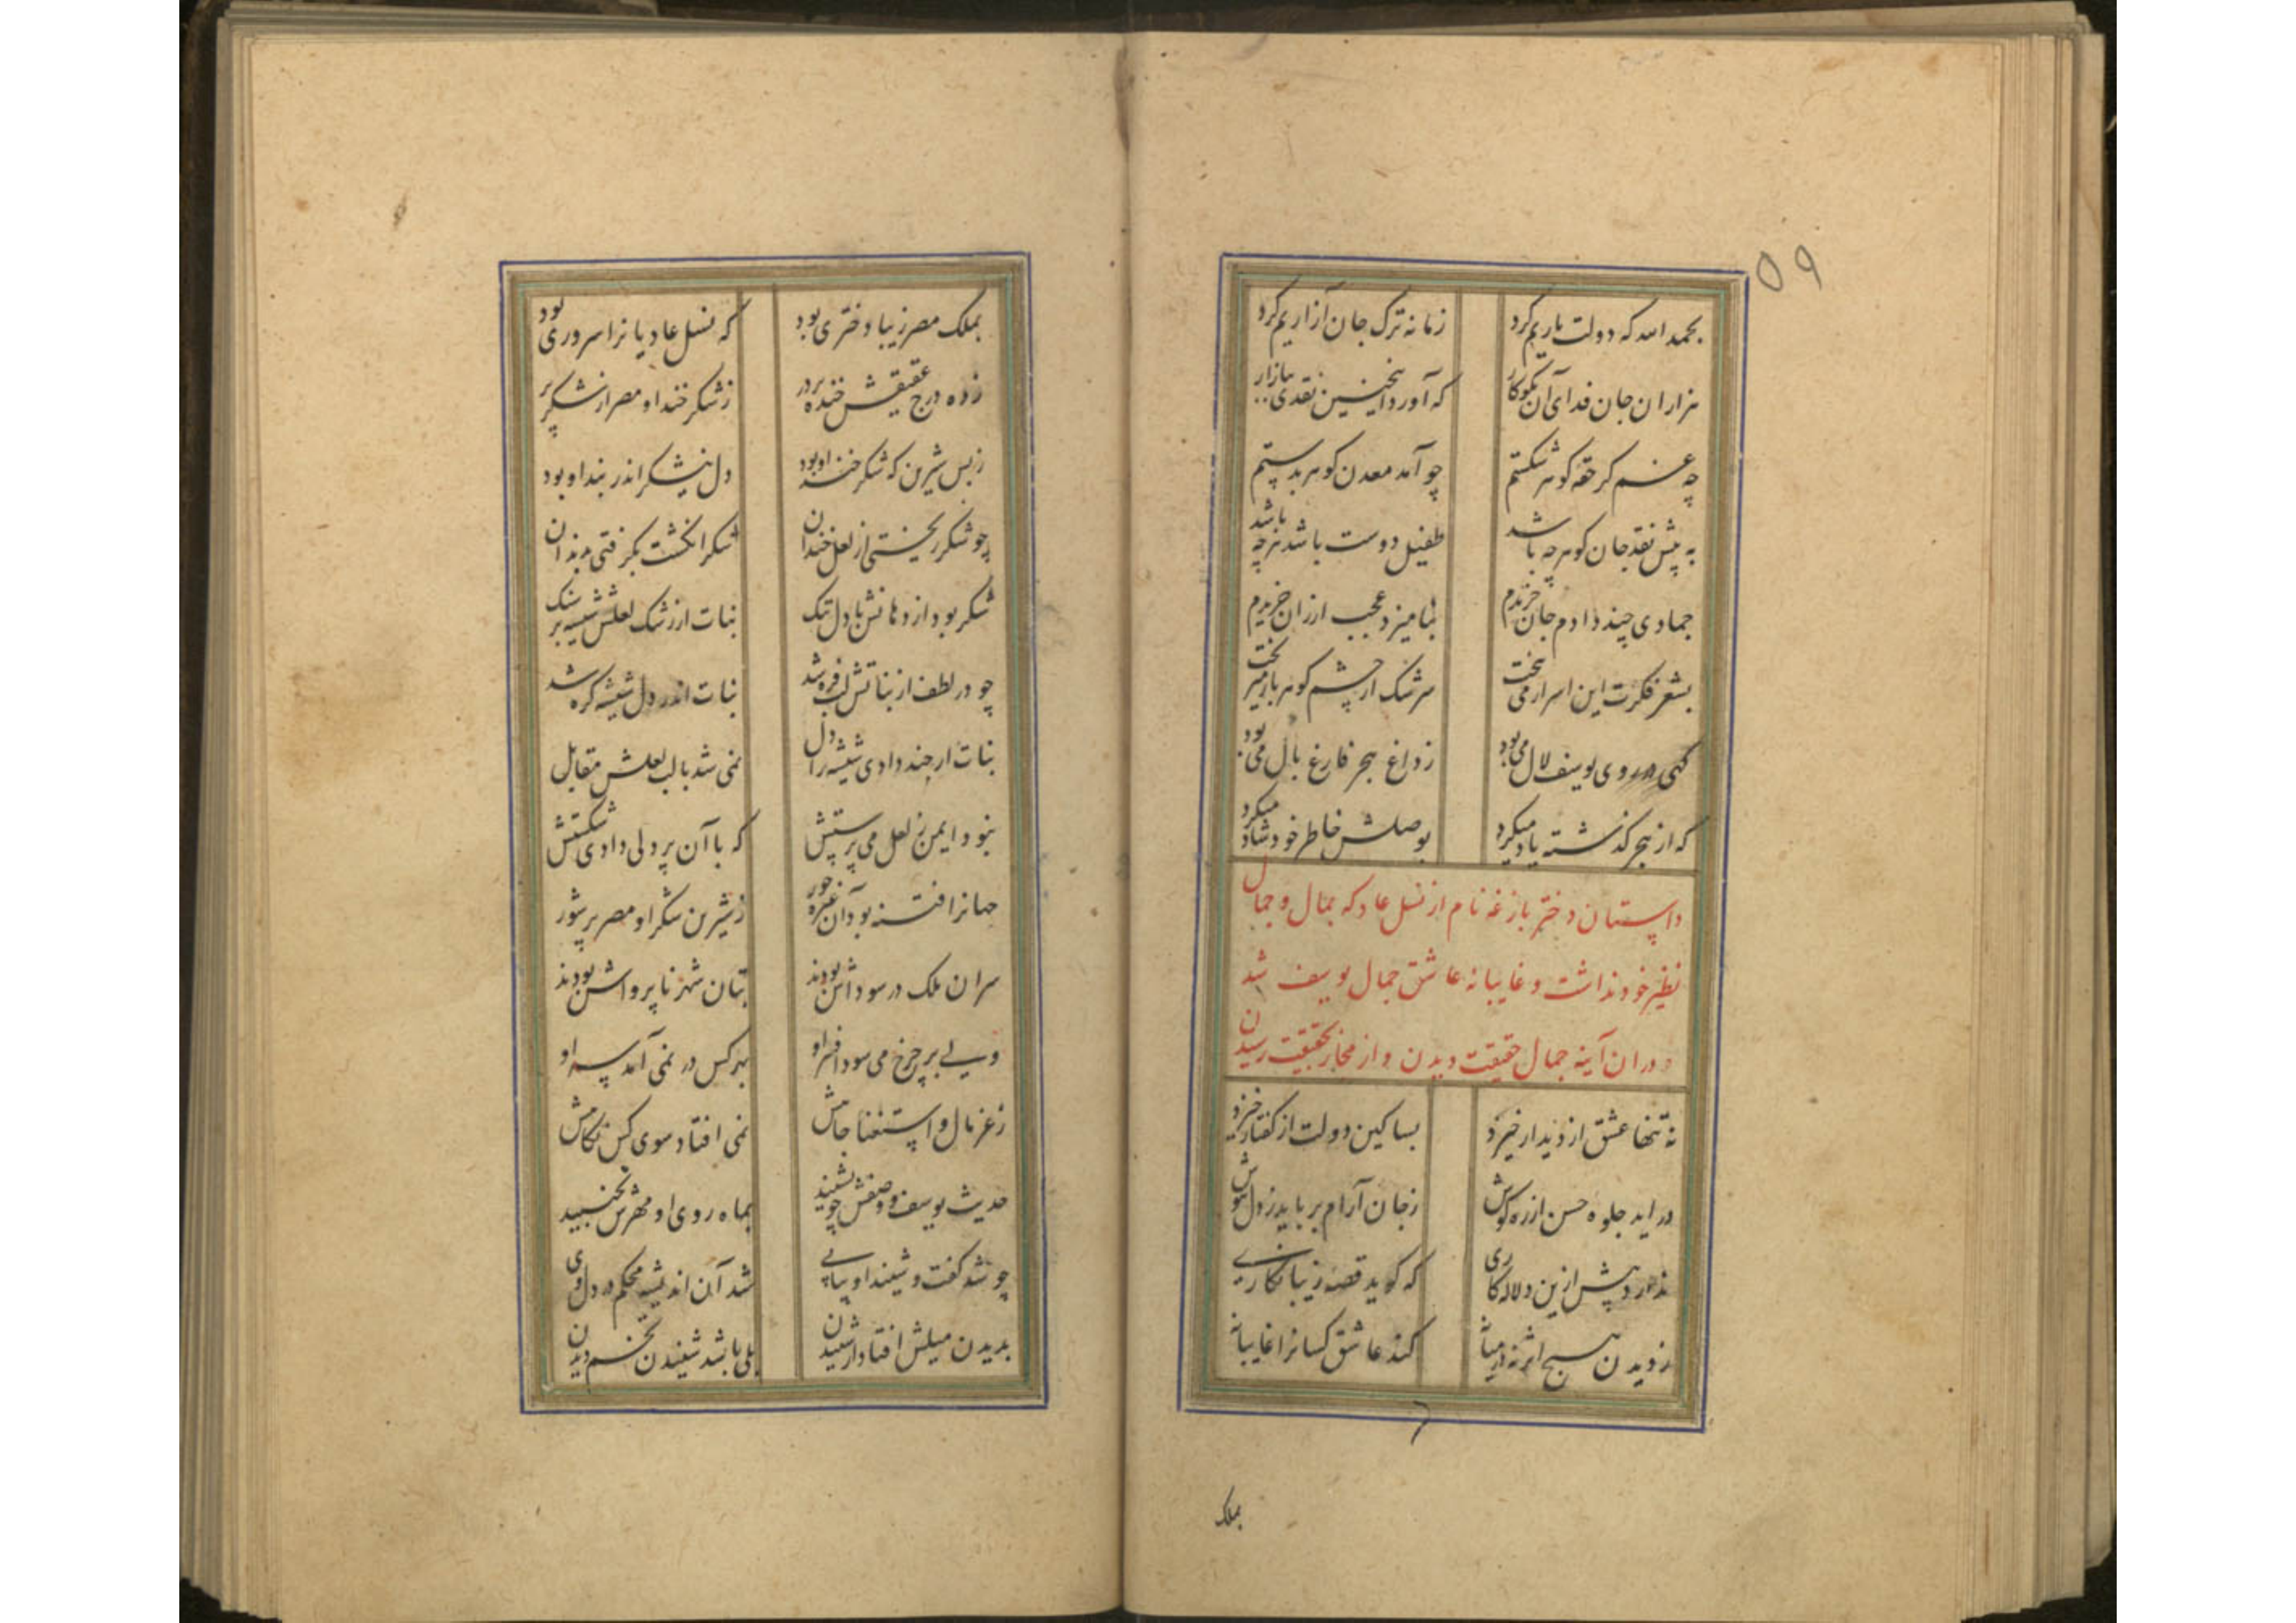 ۵۹
بحمد الله که دولت یاریم کرد زمانه ترک جان آزاریم کرد
هزاران جان فدای آن نکوکار که آورد اینچنین نقدی ببازار
چه غم گر حقه گوهر شکستم چو آمد معدن گوهر بدستم
به پیش نقد جان گوهر چه باشد طفیل دوست باشد هرچه باشد
جمادی چند دادم جان خریدم بنامیزد عجب ارزان خریدم
بشعر فکرت این اسرار می بیخت سرشک از چشم گوهربار میریخت
گهی در روی یوسف لال می بود ز داغ هجر فارغ بال می بود
که از هجر گذشته یاد میکرد بوصلش خاطر خود شاد میکرد
داستان دختر بازغه نام از نسل عاد که بمال و جمال
نظیر خود نداشت و غایبانه عاشق جمال یوسف شد
و در ان آینه جمال حقیقت دیدن و از مجاز بحقیقت رسیدن
نه تنها عشق از دیدار خیزد بسا کین دولت از گفتار خیزد
در اید جلوه حسن از ره گوش ز جان آرام برباید ز دل هوش
ندارد پیش ازین دلاله کاری که گوید قصه زیبا نگاری
ز دیدن هیچ اثر نه در میانه کند عاشق کسانرا غایبانه
بملک
بملک مصر زیبا دختری بود که نسل عادیانرا سروری بود
زده درج عقیقش خنده بر در ز شکر خند او مصر از شکر پر
ز بس شیرین که شکر خند او بود دل نیشکر اندر بند او بود
چو شکر ریختی از لعل خندان شکر انگشت بگرفتی بدندان
شکر بود از دهانش با دل تنگ نبات از رشک لعلش شیشه بر سنگ
چو در لطف از نباتش لب فره شد نبات اندر دل شیشه گره شد
نبات ار چند دادی شیشه را دل نمی شد با لب لعلش مقابل
نبود ایمن ز لعل می پرستش که با آن پر دلی دادی شکستش
جهانرا فتنه بود آن غیرت حور ز شیرین شکر او مصر پر شور
سران ملک در سوداش بودند بتان شهر ناپرواش بودند
ولی بر چرخ می سود افسر او بهر کس در نمی آمد سر او
ز عز مال و استغنا جاهش نمی افتاد سوی کس نگاهش
حدیث یوسف و وصفش چو بشنید بماه روی او مهرش بجنبید
چو شد گفت و شنید او پیاپی شد آن اندیشه محکم در دل وی
بدیدن میلش افتاد از شنیدن بلی باشد شنیدن تخم دیدن